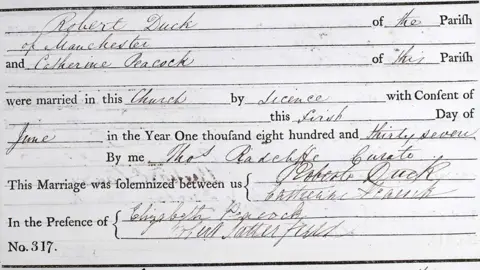 Robert Duck of the Parish
of Manchester
and Catherine Peacock of this Parish
were married in this Church by Licence with Consent of
this first Day of
June in the Year One thousand eight hundred and thirty seven
By me Thos Radcliffe Curate
This Marriage was solemnized between us { Robert Duck
Catherine Peacock
In the Presence of { Elizabeth Peacock
No. 317.